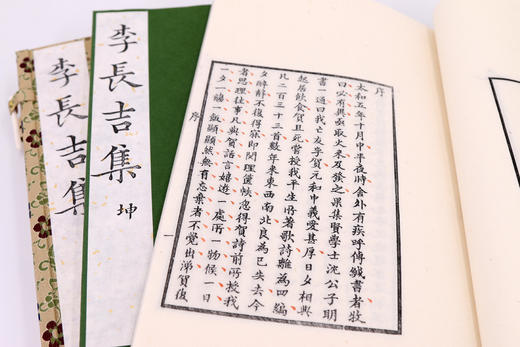 序
太和五年十月中半夜時舍外有疾呼傳緘書者牧
曰必有異亟取火來及發之果集賢學士沈公子明
書一通曰我亡友李賀元和中義愛甚厚日夕相與
起居飲食賀且死嘗授我平生所著歌詩離為四編
凡二百三十三首數年來東西南北良為已失去今
夕醉解不復得寐即閱理篋帙忽得賀詩前所授我
者思理往事凡與賀話言嬉遊一處所一物候一日
一夕一觴一飯顯顯然無有忘棄者不覺出涕賀復
序
一
李長吉集
坤
李長吉集